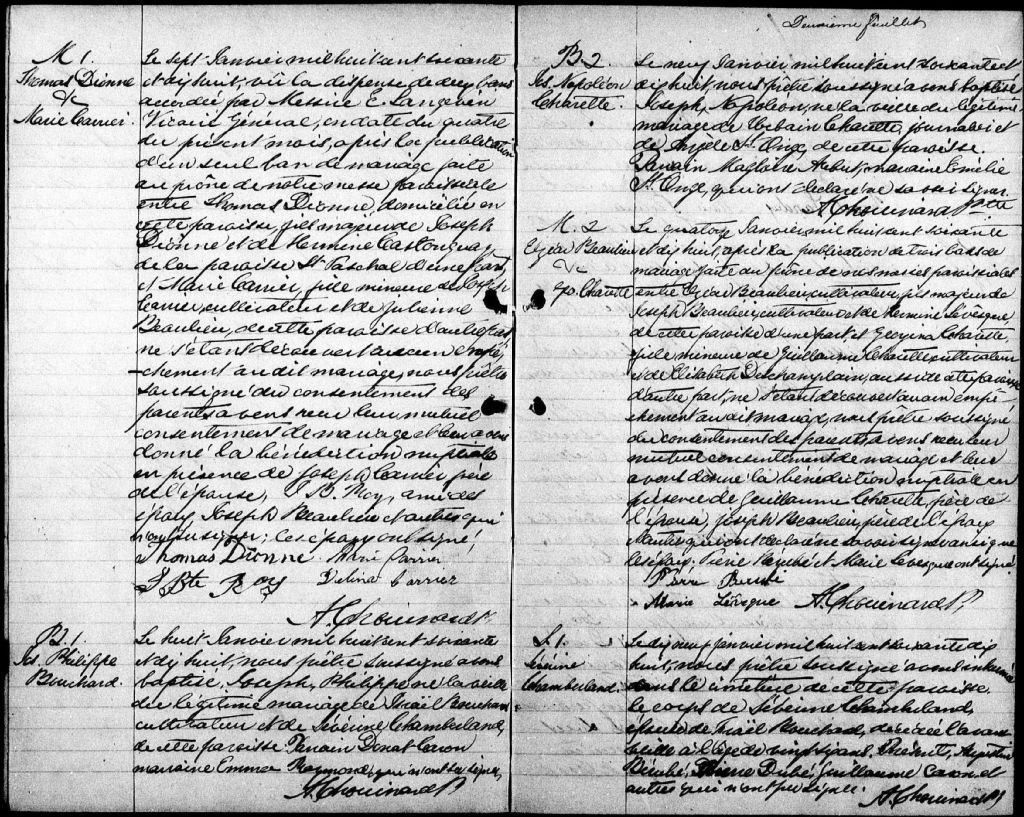 M 1.
Thomas Dionne
&
Marie Carrier
Le sept Janvier mil huit cent soixante
et dix huit, vû la dispense de deux bans
accordée par Messire E. Langevin
Vicaire Général, en date du quatre
du présent mois, après la publication
d'un seul ban de mariage faite
au prône de notre messe paroissiale
entre Thomas Dionne, domicilié en
cette paroisse, fils majeur de Joseph
Dionne et de Hermine Castonguay
de la paroisse St Paschal d'une part,
et Marie Carrier, fille mineure de Joseph
Carrier, cultivateur et de Julienne
Beaulieu, de cette paroisse d'autre part
ne s'étant découvert aucun empê-
-chement au dit mariage, nous prêtre
soussigné du consentement des
parents, avons reçu leur mutuel
consentement de mariage et leur avons
donné la bénédiction nuptiale
en présence de Joseph Carrier père
de l'épouse, B. Roy, ami des
époux Joseph Beaulieu et autres qui
n'ont pu signer; les époux ont signé
Thomas Dionne Marie Carrier
J Bte Roy Délina Carrier
A. Chouinard Ptre
B. 1.
Js. Philippe
Bouchard
Le huit Janvier mil huit cent soixante
et dix huit, nous prêtre soussigné avons
baptisé, Joseph, Philippe né la veille
du légitime mariage de Thaël Bouchard
cultivateur et de Séverine Chamberland,
de cette paroisse Parrain Donat Caron
marraine Emma Raymond, qui n'ont su signer,
A. Chouinard Ptre
Deuxième feuillet
B 2.
Js. Napoléon
Charette.
Le neuf Janvier mil huit cent soixante et
dix huit, nous prêtre soussigné avons baptisé
Joseph, Napoléon, né la veille du légitime
mariage de Urbain Charette, journalier et
de Angèle St. Onge, de cette paroisse.
Parrain Magloire Aubut, marraine Emélie
St. Onge, qui ont déclaré ne savoir signer.
A. Chouinard Ptre
M. 2
Elzéar Beaulieu
&
Geo. Charette
Le quatorze Janvier mil huit cent soixante
et dix huit, après la publication de trois bans de
mariage faite au prône de nos messes paroissiales
entre Elzéar Beaulieu, cultivateur, fils majeur de
Joseph Beaulieu, cultivateur et de Hermine Levesque
de cette paroisse d'une part, et Georgina Charette,
fille mineure de Guillaume Charette, cultivateur
et de Elisabeth Deschamplain, aussi de cette paroisse
d'autre part, ne s'étant découvert aucun empê-
chement au dit mariage, nous prêtre soussigné
du consentement des parents, avons reçu leur
mutuel consentement de mariage et leur
avons donné la bénédiction nuptiale en
présence de Guillaume Charette, père de
l'épouse, Joseph Beaulieu, père de l'époux
qui ont déclaré ne savoir signer
l'époux. Pierre Bérubé et Marie Levesque ont signé
Pierre Berubé
Marie Lévesque A. Chouinard Ptre
S. 1.
Séverine
Chamberland
Le dix neuf janvier mil huit cent soixante dix
huit, nous prêtre soussigné avons inhumé
dans le cimetière de cette paroisse
le corps de Séverine Chamberland,
épouse de Thaël Bouchard, décédée l'avant
veille à l'âge de vingt sept ans. Présents, Augustin
Bérubé, Dubé, Guillaume Caron et
autres qui n'ont pu signer.
A. Chouinard Ptre